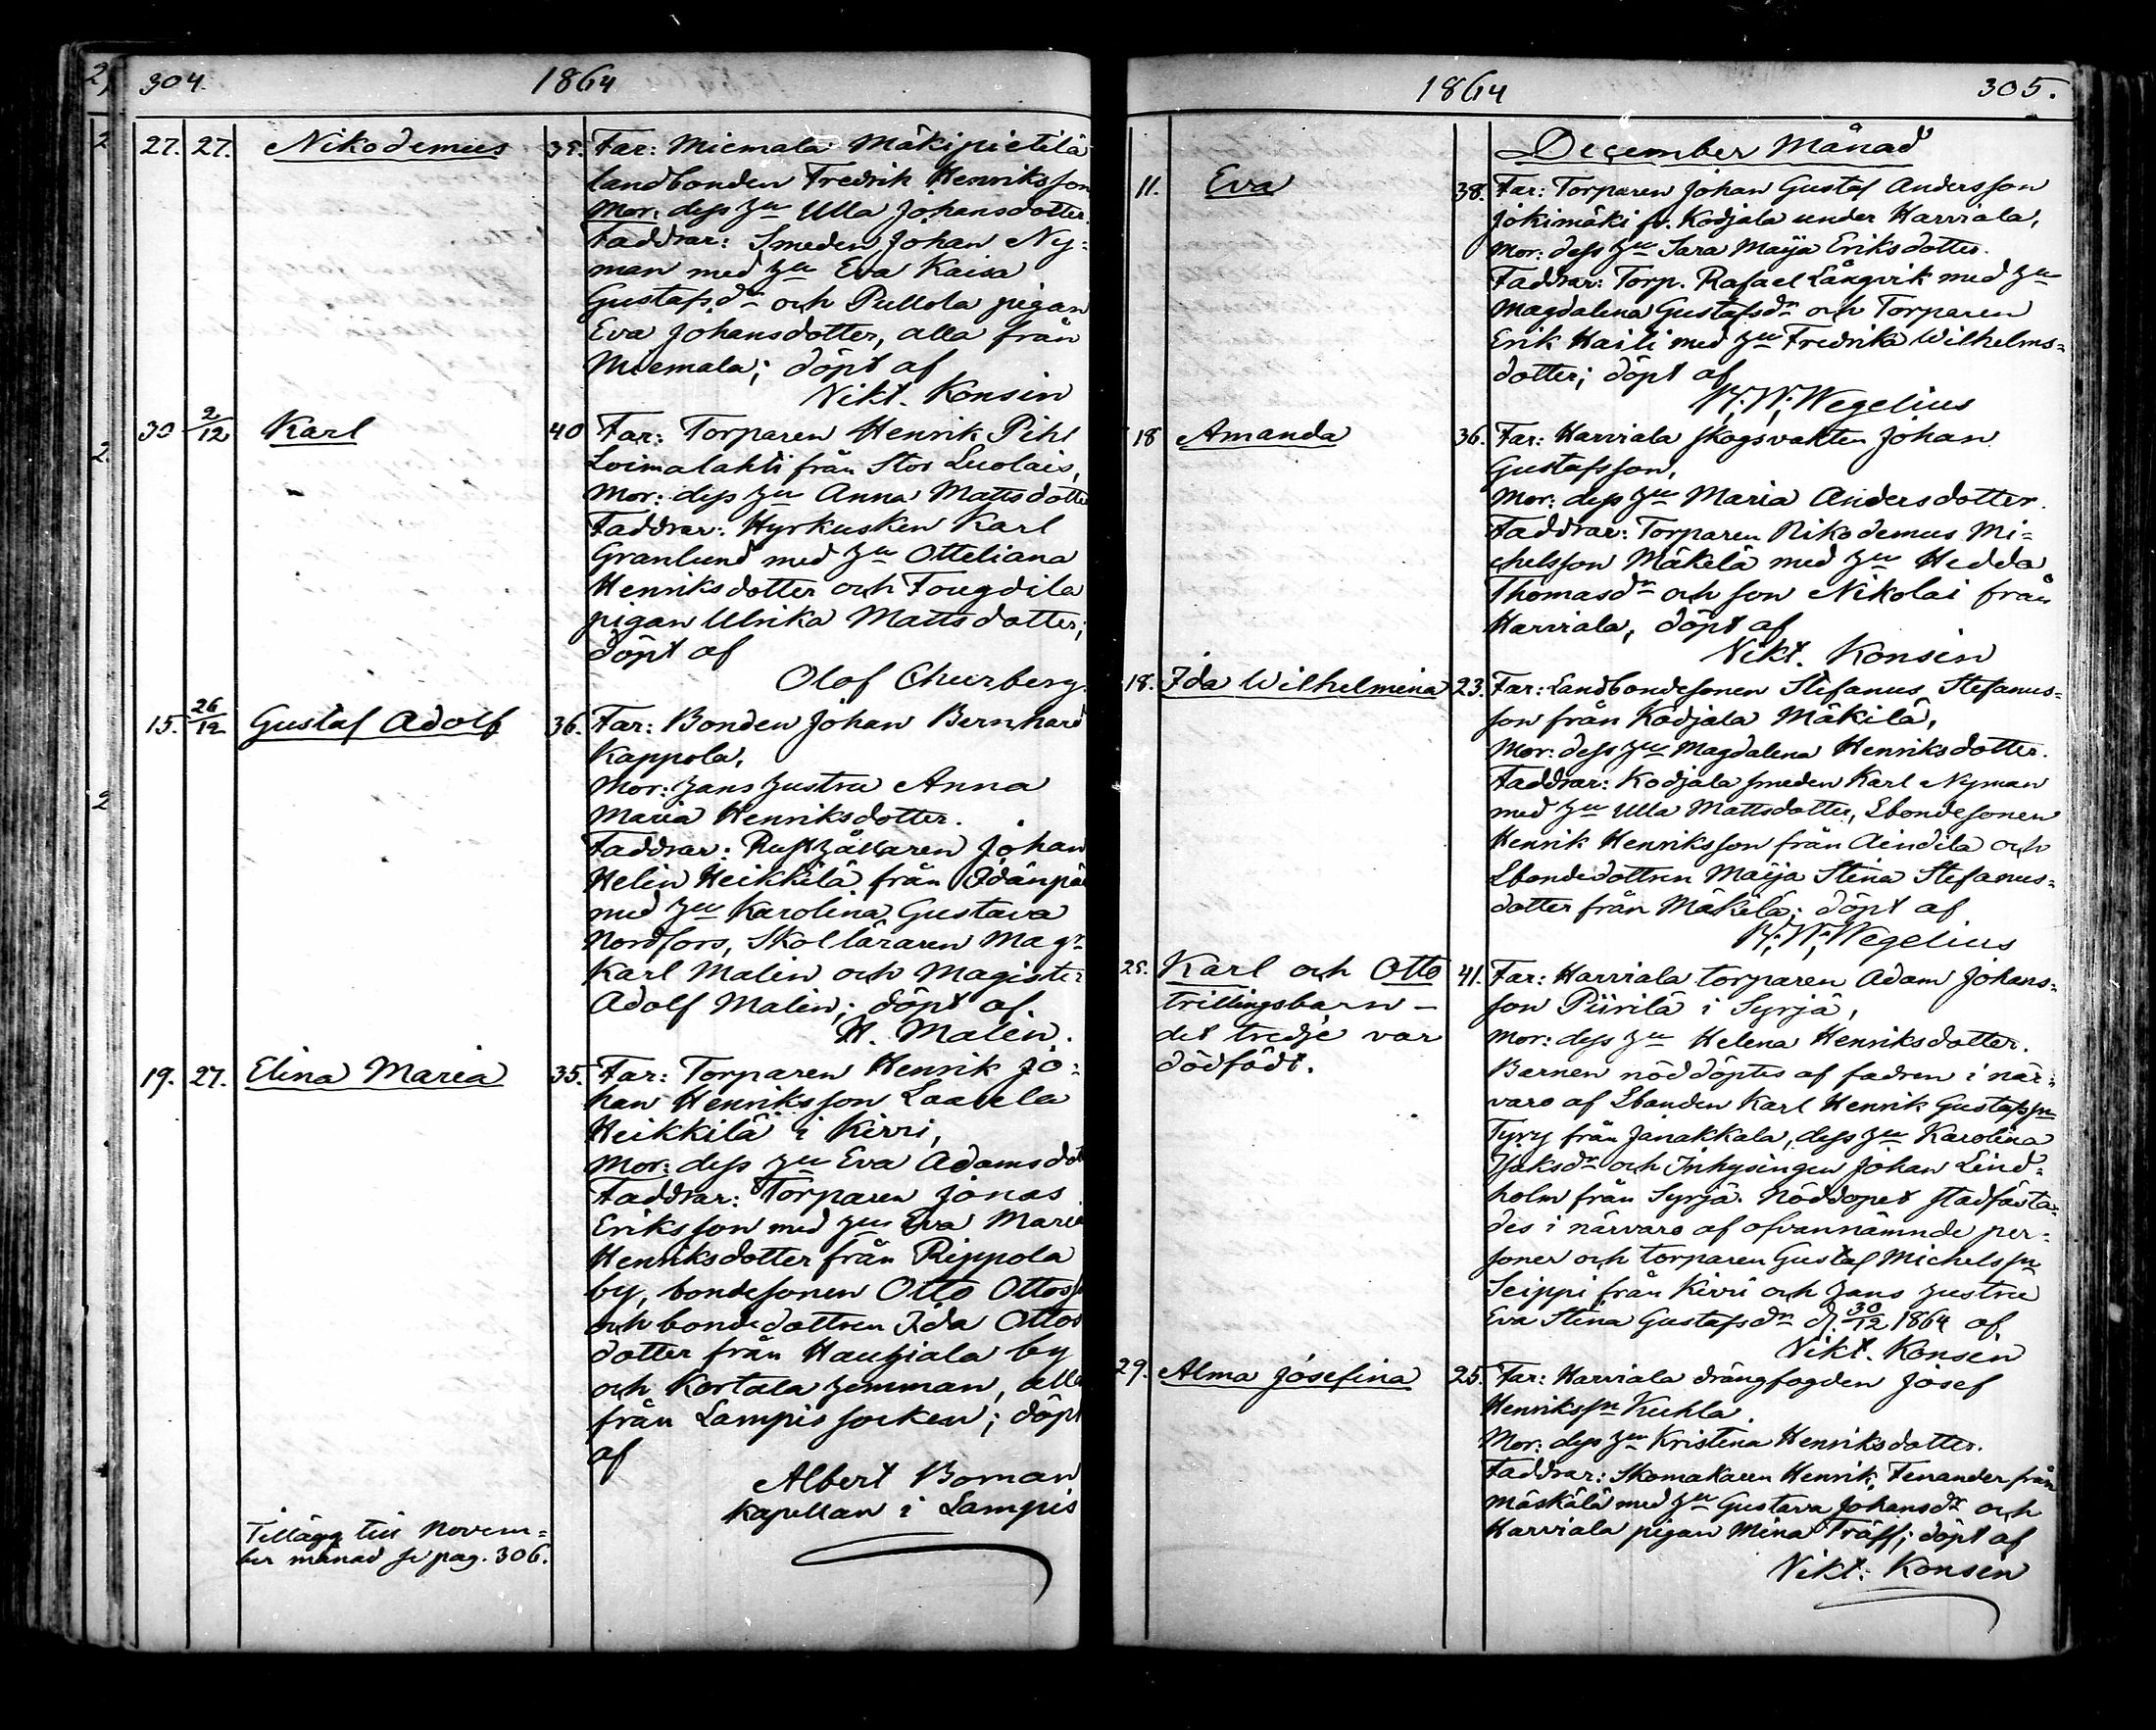 304. 1864
27. 27. Nikodemus 35. Far: Miemala Mäkipietilä
landbonden Fredrik Henriksson
Mor: dess hu Ulla Johansdotter.
Faddrar: Smeden Johan Ny=
man med hu Eva Kaisa
Gustafsdr och Pullola pigan
Eva Johansdotter, alla från
Miemala; döpt af
Nikt. Konsin
30 2/12 Karl 40 Far: Torparen Henrik Pihl
Loimalahti från Stor Luolais,
Mor: dess hu Anna Mattsdotte
Faddrar: Hyrkusken Karl
Granlund med hu Otteliana
Henriksdotter och Fougdila
pigan Ulrika Mattsdotter;
döpt af
Olof Churberg.
15. 26/12 Gustaf Adolf 36. Far: Bonden Johan Bernhard
Kappola,
Mor: hans hustru Anna
Maria Henriksdotter.
Faddrar: Rusthållaren Johan
Helin Heikkilä från Idänpä
med hu Karolina Gustava
Nordfors, Skolläraren Magr
Karl Malin och Magister
Adolf Malin; döpt af
H. Malin.
19. 27. Elina Maria 35. Far: Torparen Henrik Jo=
han Henriksson Laavela
Heikkilä i Kirri,
Mor: dess hu Eva Adamsdot
Faddrar: Torparen Jonas
Eriksson med hu Eva Maria
Henriksdotter från Rippola
by, bondesonen Otto Ottoss
och bondedottren Ida Ottos
dotter från Hauhiala by
och Kortala hemman, alla
från Lampis socken; döpt
af
Albert Boman
Kapellan i Lampis
Tillägg till Novem=
ber månad se pag. 306.
1864 305.
December Månad
11. Eva 38. Far: Torparen Johan Gustaf Andersson
Jokimäki fr. Kodjala under Harviala,
Mor: dess hu Sara Maija Eriksdotter.
Faddrar: Torp. Rafael Långvik med hu
Magdalena Gustafsdr och Torparen
Erik Haili med hu Fredrika Wilhelms=
dotter; döpt af
K. W. Wegelius
18 Amanda 36. Far: Harviala skogsvakten Johan
Gustafsson,
Mor: dess hu Maria Andersdotter.
Faddrar: Torparen Nikodemus Mi=
chelsson Mäkelä med hu Hedda
Thomasdr och son Nikolai från
Harviala, döpt af
Nikt. Konsin
18. Ida Wilhelmina 23. Far: Landbondesonen Stefanus Stefanus=
son från Kodjala Mäkilä,
Mor: dess hu Magdalena Henriksdotter.
Faddrar: Kodjala smeden Karl Nyman
med hu Ulla Mattsdotter, Lbondesonen
Henrik Henriksson från Aindila och
Lbondedottren Maija Stina Stefanus=
dotter från Mäkilä; döpt af
K. W. Wegelius
25. Karl och Otto 41. Far: Harviala torparen Adam Johans=
trillingsbarn – son Piirilä i Syrjä,
det tredje var Mor: dess hu Helena Henriksdotter.
dödfödt. Barnen nöddöptes af fadren i när=
varo af Lbonden Karl Henrik Gustafssn
Tyry från Janakkala, dess hu Karolina
Isaksdr och Inhysingen Johan Lind=
holm från Syrjä. Nöddopet stadfästa=
des i närvaro af ofvannämnde per=
soner och torparen Gustaf Michelssn
Seippi från Kirri och hans hustru
Eva Stina Gustafsdr d. 30/12 1864 af
Nikt. Konsin
29. Alma Josefina 25. Far: Harviala drängfogden Josef
Henrikssn Kuhla.
Mor: dess hu Kristina Henriksdotter.
Faddrar: Skomakaren Henrik Fenander från
Mäskälä med hu Gustava Johansdr och
Harviala pigan Mina Träff; döpt af
Nikt: Konsin